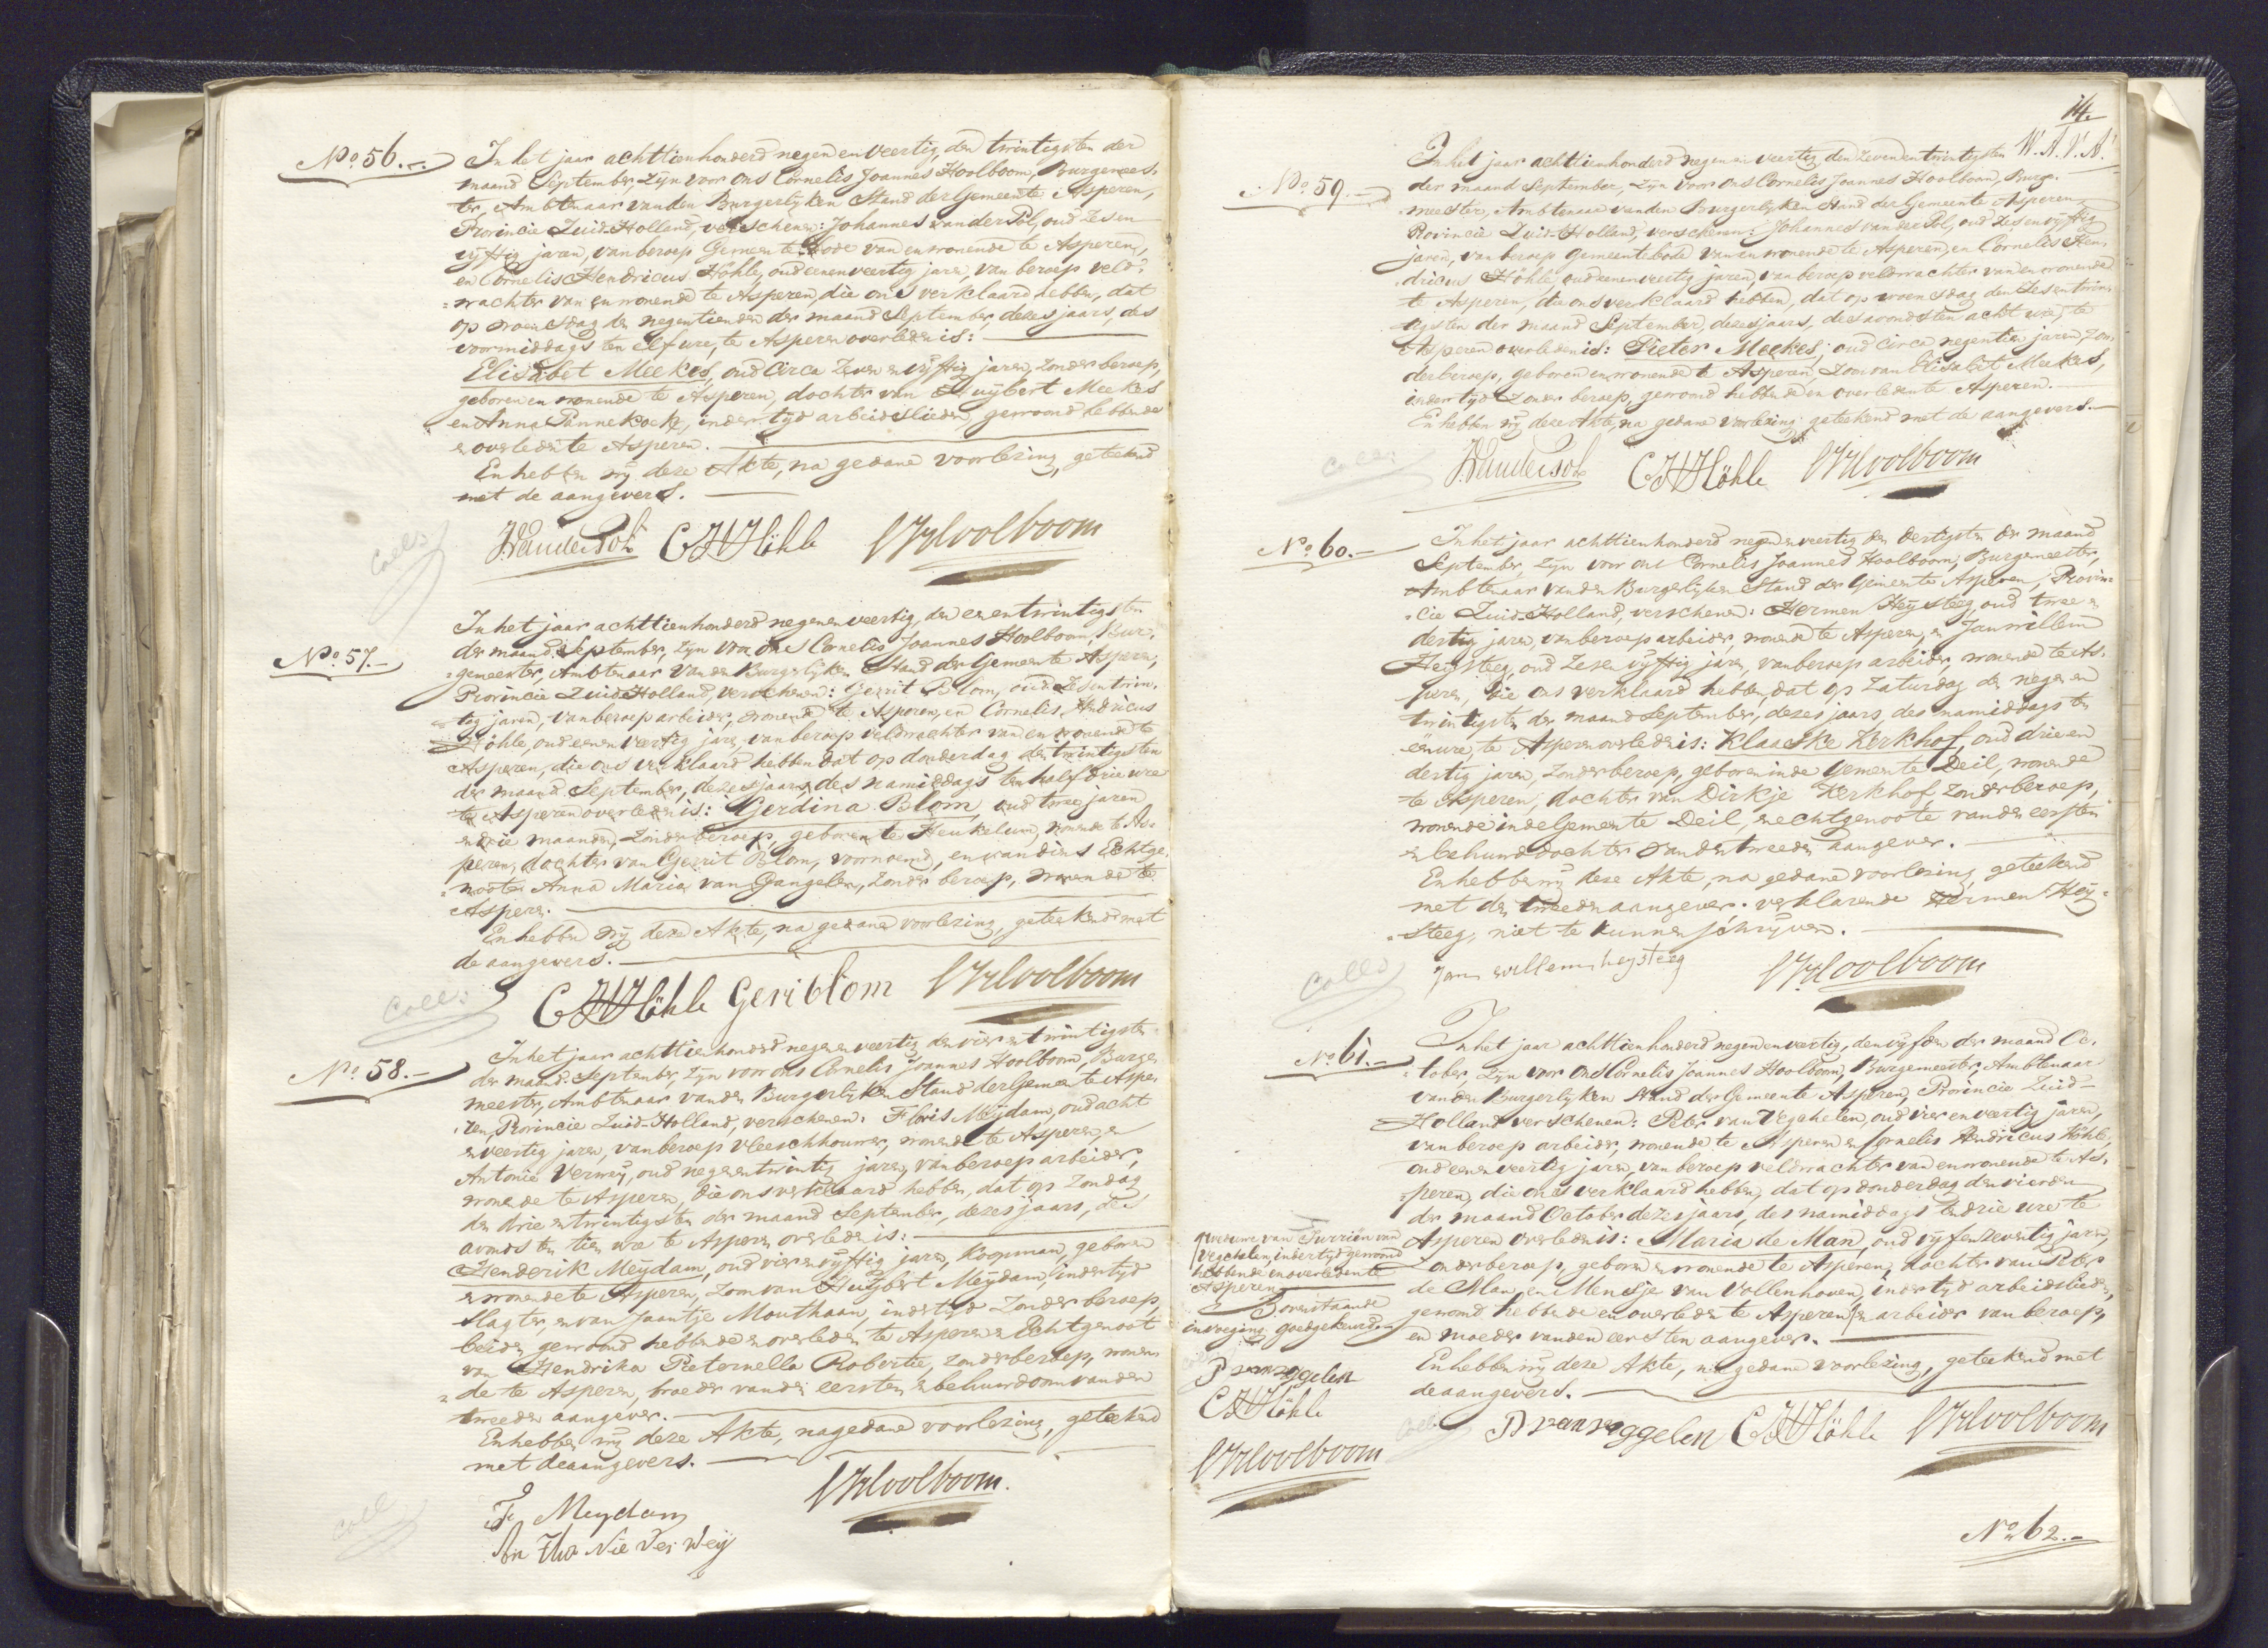 No. 56.-
In het jaar achttienhonderd negen en veertig, den twintigsten der
maand September, zijn voor ons Cornelis Joannes Hoolboom, Burgemees-
ter, Ambtenaar van den Burgerlijken Stand der Gemeente Asperen,
Provincie Zuid-Holland, verschenen: Johannes van der Pol, oud zes en
vijftig jaren, van beroep Gemeente bode van en wonende te Asperen,
en Cornelis Hendricus Höhle, oud eenenveertig jaren, van beroep veld-
=wachter van en wonende te Asperen, die ons verklaard hebben, dat
op woensdag den negentienden der maand September, dezes jaars, des
voormiddags ten elf ure, te Asperen overleden is:
Elisabet Meekes, oud circa zeven en vijftig jaren, zonder beroep,
geboren en wonende te Asperen, dochter van Huijbert Meekes
en Anna Pannekoek, in der tijd arbeidslieden, gewoond hebbende
en overleden te Asperen.
En hebben wij deze Akte, na gedane voorlezing, geteekend
met de aangevers.
Coll:
J. vander Pol CHHöhle CJHoolboom
No. 57.-
In het jaar achttienhonderd negen en veertig, den eenentwintigsten
der maand September, zijn voor ons Cornelis Joannes Hoolboom, Bur-
=gemeester, Ambtenaar van den Burgerlijken Stand der Gemeente Asperen,
Provincie Zuid-Holland, verschenen: Gerrit Blom, oud zes en twin-
tig jaren, van beroep arbeider, wonende te Asperen, en Cornelis Hendricus
Höhle, oud eenen veertig jaren, van beroep veldwachter van en wonende te
Asperen, die ons verklaard hebben dat op donderdag den twintigsten
der maand September, dezes jaars, des namiddags ten half drie ure
te Asperen overleden is: Gerdina Blom, oud twee jaren
en drie maanden, zonder beroep, geboren te Heukelum, wonende te As-
peren, dochter van Gerrit Blom, voornoemd, en van diens Echtge-
=noote Anna Maria van Gangelen, zonder beroep, wonende te
Asperen.
En hebben wij deze Akte, na gedane voorlezing, geteekend met
de aangevers.
Coll:
CHHöhle Geriblom CJHoolboom
No. 58.-
In het jaar achttienhonderd negen en veertig den vier en twintigsten
der maand September, zijn voor ons Cornelis Joannes Hoolboom, Burge-
meester, Ambtenaar van den Burgerlijken Stand der Gemeente Aspe-
ren, Provincie Zuid-Holland, verschenen: Floris Meijdam, oud acht
en veertig jaren, van beroep vleeschhouwer, wonende te Asperen, en
Antonie Verweij, oud negenentwintig jaren, van beroep arbeider,
wonende te Asperen, die ons verklaard hebben, dat op Zondag
den drie en twintigsten der maand September, dezes jaars, des
avonds ten tien ure te Asperen overleden is:
Henderik Meijdam, oud vier en vijftig jaren, Koopman, geboren
en wonende te Asperen, zoon van Huijbert Meijdam, in der tijd
slagter, en van Jaantje Mouthaan, in der tijd zonder beroep,
beiden gewoond hebbende en overleden te Asperen en Echtgenoot
van Hendrika Pieternella Robertie, zonder beroep, wonen-
=de te Asperen, broeder van den eersten en behuwdoom van den
tweeden aangever.
En hebben wij deze Akte, na gedane voorlezing, geteekend
met de aangevers.
Coll
CJHoolboom.
F Meydam
An tho Nie Ver Weij
14.
W.A.V.A.
No. 59.-
In het jaar achttienhonderd negen en veertig, den zevenentwintigsten
der maand September, zijn voor ons Cornelis Joannes Hoolboom, Burge-
meester, Ambtenaar van den Burgerlijken Stand der Gemeente Asperen,
Provincie Zuid-Holland, verschenen: Johannes van der Pol, oud zes en vijftig
jaren, van beroep Gemeentebode van en wonende te Asperen, en Cornelis Hen-
dricus Höhle oud eenen veertig jaren, van beroep veldwachter van en wonende
te Asperen, die ons verklaard hebben, dat op woensdag den zesentwin-
tigsten der maand September, dezes jaars, des avonds ten acht ure, te
Asperen overleden is: Pieter Meekes, oud circa negentien jaren, zon-
der beroep, geboren en wonende te Asperen, zoon van Elisabet Meekes,
in der tijd zonder beroep, gewoond hebbende en overleden te Asperen.
En hebben wij deze Akte, na gedane voorlezing geteekend met de aangevers.
Coll:
J. vander Pol CHHöhle CJHoolboom
No. 60.-
In het jaar achttienhonderd negen en veertig den dertigsten der maand
September, zijn voor ons Cornelis Joannes Hoolboom, Burgemeester,
Ambtenaar van den Burgerlijken Stand der Gemeente Asperen, Provin-
=cie Zuid-Holland, verschenen: Hermen Heijsteeg, oud twee en
dertig jaren, van beroep arbeider, wonende te Asperen, en Jan willem
Heijsteeg, oud zes en vijftig jaren, van beroep arbeider, wonende te As-
peren, die ons verklaard hebben, dat op Zaturdag den negen en
twintigsten der maand September, dezes jaars, des namiddags ten
eenure, te Asperen overleden is: Klaaske Kerkhof, oud drie en
dertig jaren, zonder beroep, geboren in de Gemeente Deil, wonende
te Asperen, dochter van Dirkje Kerkhof zonder beroep,
wonende in de Gemeente Deil, en echtgenoote van den eersten
en behuwddochter van den tweeden aangever.
En hebben wij deze Akte, na gedane voorlezing, geteekend
met den tweeden aangever. verklarende Hermen Heij=
=steeg, niet te kunnen schrijven.
Coll:
Jan willem heysteeg CJHoolboom
No. 61.-
In het jaar achttienhonderd negen en veertig, den vijfden der maand Oc-
=tober, zijn voor ons Cornelis Joannes Hoolboom, Burgemeester, Ambtenaar
van den Burgerlijken Stand der Gemeente Asperen, Provincie Zuid-
Holland verschenen: Peter van Veggelen, oud vier en veertig jaren,
van beroep arbeider, wonende te Asperen en Cornelis Hendricus Höhle,
oud eenen veertig jaren, van beroep veldwachter van en wonende te As-
=peren, die ons verklaard hebben, dat op donderdag den vierden
der maand October dezes jaars, des namiddags ten drie ure te
Asperen overleden is: Maria de Man, oud vijf en zeventig jaren,
zonder beroep, geboren en wonende te Asperen, dochter van Peter
de Man, en Mensje van Vollenhoven, in der tijd arbeidslieden,
gewoond hebbende en overleden te Asperen, en arbeider van beroep,
en moeder van den eersten aangever.
En hebben wij deze Akte, na gedane voorlezing, geteekend met
de aangevers.
Coll
P van veggelen CHHöhle CJHoolboom
weduwe van Jurriën van
Vegchelen, in der tijd gewoond
hebbende en overleden te
Asperen
Bovenstaande
invoeging goedgekeurd.-
P van veggelen
CHHöhle
CJHoolboom
No. 62.-